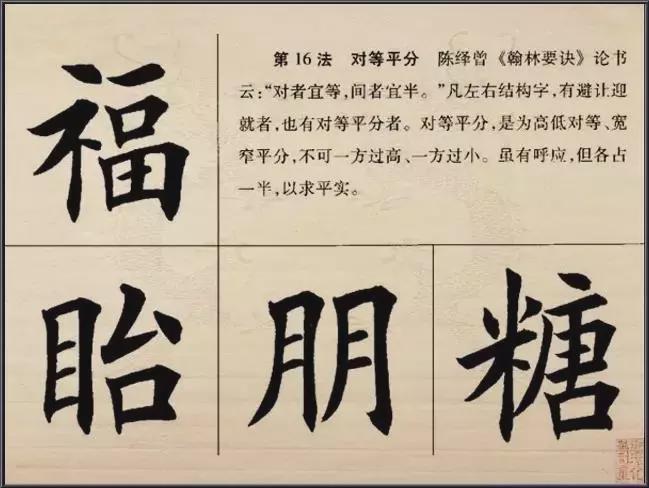 福
第16法 对等平分 陈绎曾《翰林要诀》论书
云:“对者宜等,间者宜半。”凡左右结构字,有避让迎
就者,也有对等平分者。对等平分,是为高低对等、宽
窄平分,不可一方过高、一方过小。虽有呼应,但各占
一半,以求平实。
眙 朋 糖